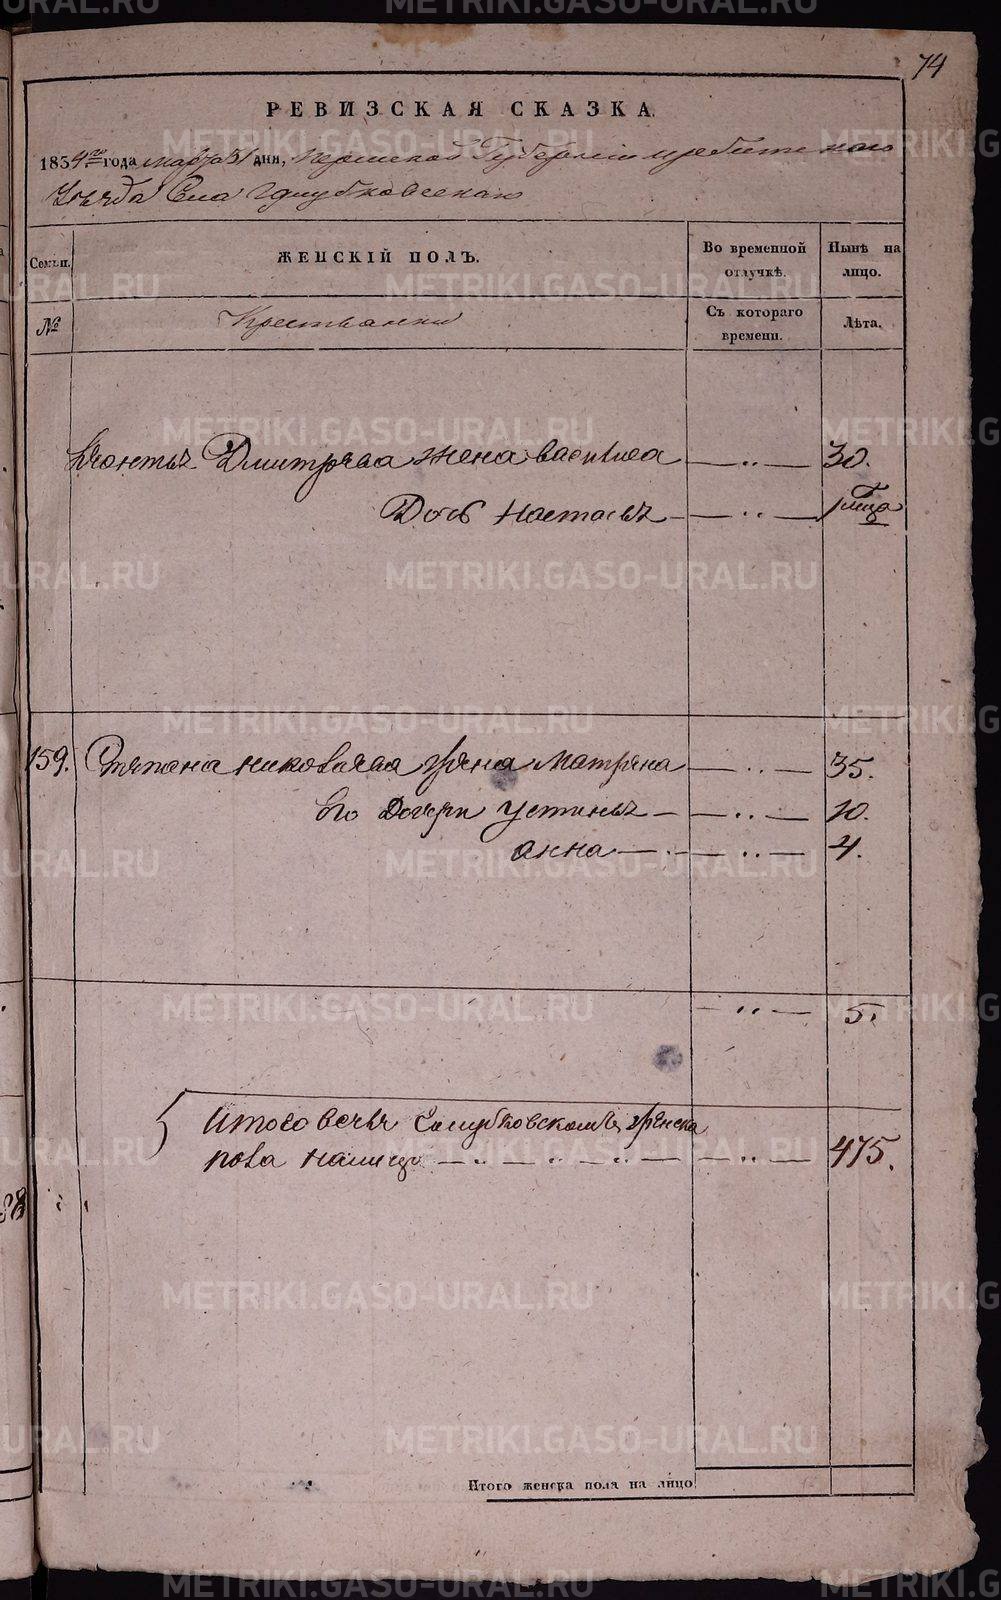 74
РЕВИЗСКАЯ СКАЗКА.
1854го года марта 31 дня, Пермской Губернии Ирбитскаго
Уезда Села Голубковскаго
Семьи. ЖЕНСКІЙ ПОЛЪ. Во временной отлучкѣ. Нынѣ на лицо.
№ Крестьянки Съ котораго времени. Лѣта.
Дмитрева жена василиса 30.
Дочь настасья
159. Степана николаева жена матрена 35.
Его Дочери устинья 10.
анна 4.
5.
Итого всехъ Голубковскомъ женска
пола налицо 475.
Итого женска пола на лицо
METRIKI.GASO-URAL.RU